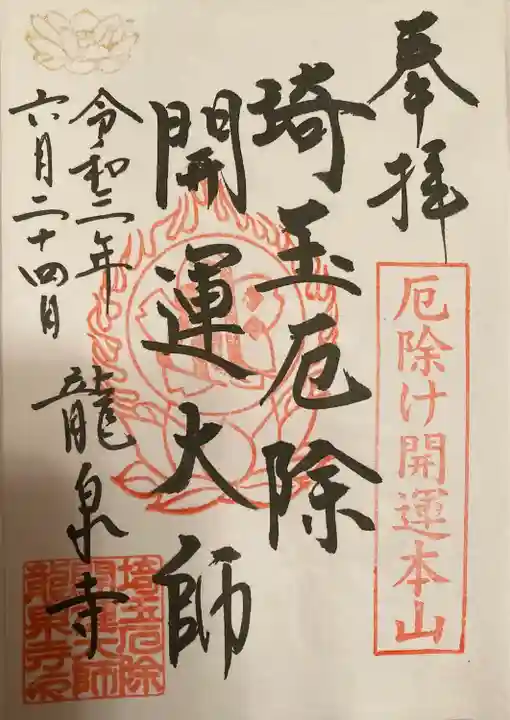 奉拝
厄除け開運本山
埼玉厄除
開運大師
令和二年
六月二十四日
龍泉寺
埼玉厄除
開運大師
龍泉寺印